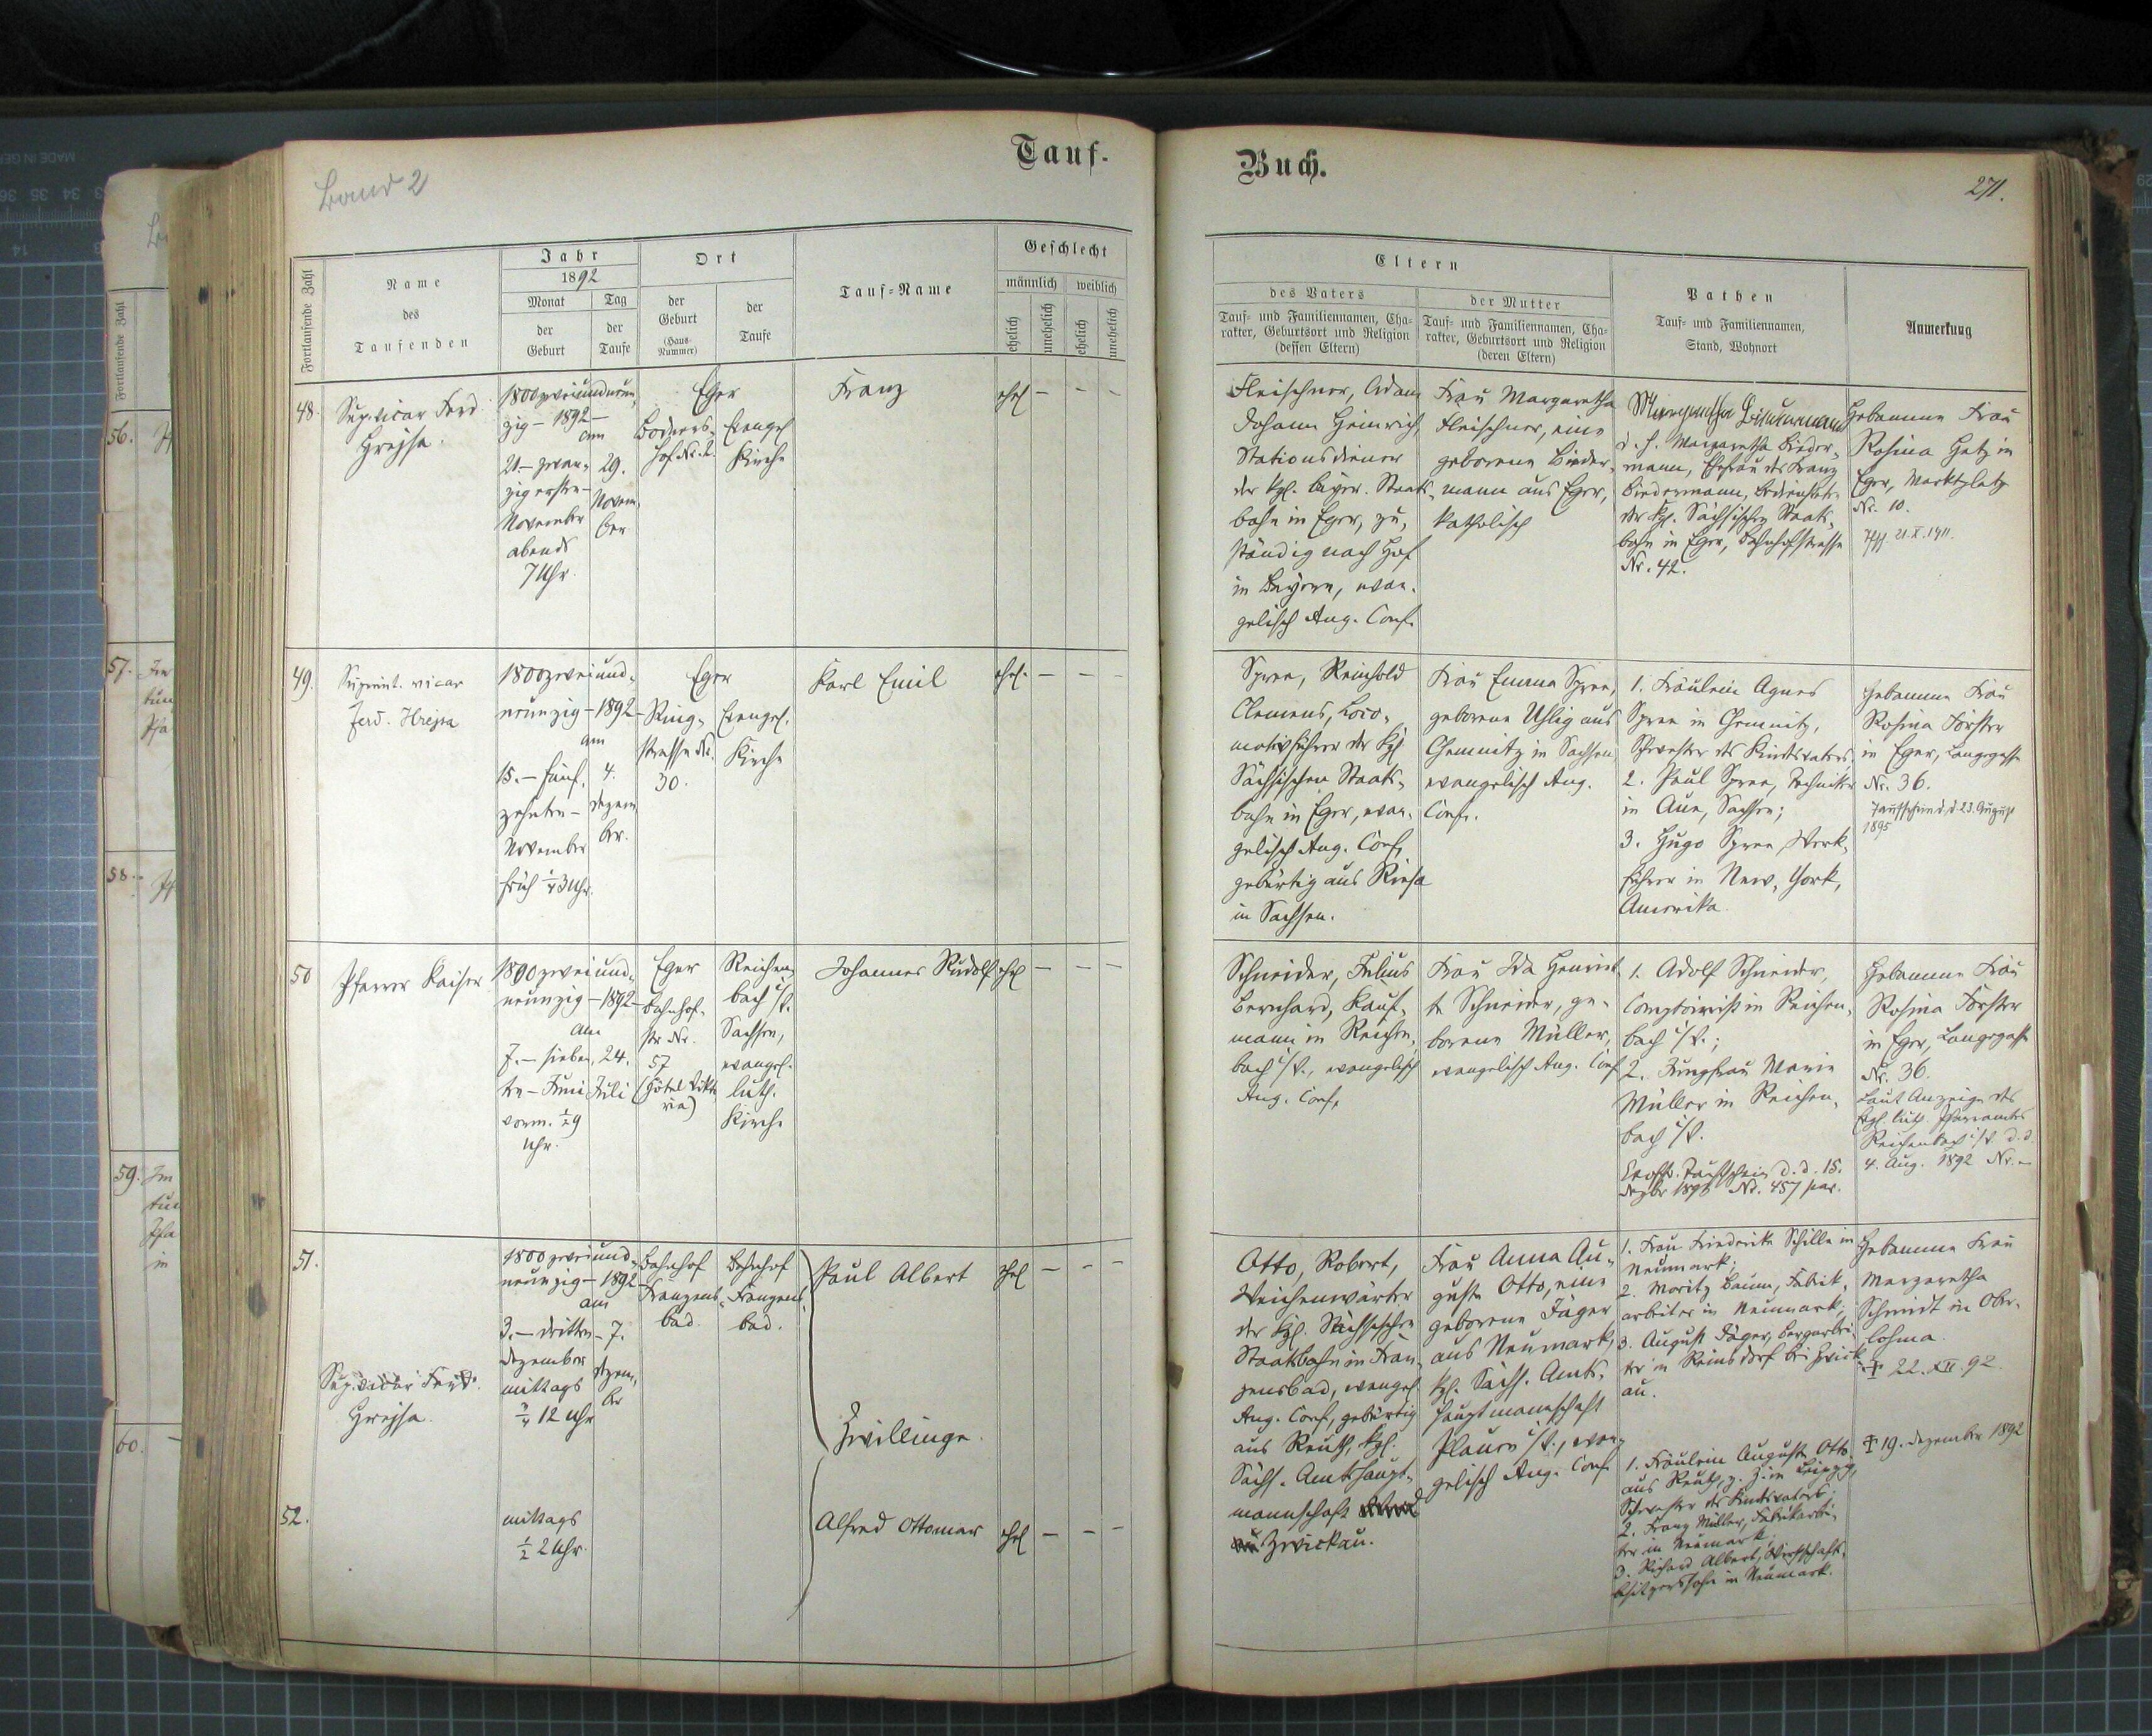 Band 2
Tauf-
Buch.
271.
Fortlaufende Zahl
Name
des
Taufenden
Jahr
1892
Monat
der
Geburt
Tag
der
Taufe
Ort
der
Geburt
(Haus-
Nummer)
der
Taufe
Tauf-Name
Geschlecht
männlich
weiblich
ehelich
unehelich
ehelich
unehelich
Eltern
des Vaters
Tauf- und Familiennamen, Cha-
rakter, Geburtsort und Religion
(dessen Eltern)
der Mutter
Tauf- und Familiennamen, Cha-
rakter, Geburtsort und Religion
(deren Eltern)
Pathen
Tauf- und Familiennamen,
Stand, Wohnort
Anmerkung
48.
Sup.vicar Ferd.
Hrejsa.
1800zweiundneun-
zig – 1892 –
am
21. – zwan-
zigersten –
November
abends
7 Uhr.
29.
Novem-
ber
Eger
hof Nr. 2.
Evangel.
Kirche
Franz
ehel.
– – –
Fleischner, Adam
Johann Heinrich,
Stationsdiener
der kgl. bayer. Staats-
bahn in Eger, zu-
ständig nach Hof
in Bayern, evan-
gelisch Aug. Conf.
Frau Margaretha
Fleischner, eine
geborene Bieder-
mann aus Eger,
katholisch
Margaretha Biedermann
d. h. Margaretha Bieder-
mann, Ehefrau des Franz
Biedermann,
der kgl. Sächsischen Staats-
bahn in Eger, Bahnhofstrasse
Nr. 42.
Hebamme Frau
Rosina Hetz in
Eger, Marktplatz
Nr. 10.
21.X.1911.
49.
Superint. vicar
Ferd. Hrejsa
1800zweiund-
neunzig – 1892 –
am
15. – fünf-
zehnten –
November
früh ¼3 Uhr.
4.
Dezem-
ber.
Eger
Ring-
strasse Nr.
30.
Evangel.
Kirche
Karl Emil
ehel.
– – –
Spree, Reinhold
Clemens, Loco-
motivführer der kgl.
Sächsischen Staats-
bahn in Eger, evan-
gelisch Aug. Conf.,
gebürtig aus Riesa
in Sachsen.
Frau Emma Spree,
geborene Uhlig aus
Chemnitz in Sachsen,
evangelisch Aug.
Conf.
1. Fräulein Agnes
Spree in Chemnitz,
Schwester des Kindsvaters,
2. Paul Spree, Techniker
in Aue, Sachsen;
3. Hugo Spree, Werk-
führer in New-York,
Amerika
Hebamme Frau
Rosina Förster
in Eger, Langegasse
Nr. 36.
Taufschein d.d. 23. August
1895
50
Pfarrer Kaiser
1800zweiund-
neunzig – 1892 –
am
7. – sieben-
ten – Juni
vorm. ½9
Uhr.
24.
Juli
Eger
Bahnhof-
str Nr.
57
(Hôtel Vikto-
ria)
Reichen-
bach i/V.
Sachsen,
evangel.
luth.
Kirche
Johannes Rudolf
ehel
– – –
Schneider, Julius
Bernhard, Kauf-
mann in Reichen-
bach i/V., evangelisch
Aug. Conf.
Frau Ida Henriet-
te Schneider, ge-
borene Müller,
evangelisch Aug. Conf.
1. Adolf Schneider,
Comptoirist in Reichen-
bach i/V.;
2. Jungfrau Marie
Müller in Reichen-
bach i/V.
Taufschein d. d. 15.
Hebamme Frau
Rosina Förster
in Eger, Langegasse
Nr. 36.
Laut Anzeige des
evgl. luth. Pfarramtes
Reichenbach i/V. d. d.
4. Aug. 1892 Nr. –
51.
Sup.vicar Ferd.
Hrejsa.
1800zweiund-
neunzig – 1892 –
am
3. – dritten –
Dezember
mittags
¾ 12 Uhr
7.
Dezem-
ber
Bahnhof
Franzens-
bad.
Bahnhof
Franzens-
bad.
Paul Albert
ehel
– – –
Zwillinge.
Otto, Robert,
Weichenwärter
der kgl. Sächsischen
Staatsbahn in Fran-
zensbad, evangel.
Aug. Conf., gebürtig
aus Reuth, kgl.
Sächs. Amtshaupt-
mannschaft
Zwickau.
Frau Anna Au-
guste Otto, eine
geborene Jäger
aus Neumark,
kgl. Sächs. Amts-
hauptmannschaft
Plauen i/V., evan-
gelisch Aug. Conf.
1. Frau Friederike Schille in
Neumark;
2. Moritz Baum, Fabrik-
arbeiter in Neumark;
3. August Jäger, Bergarbei-
ter in Reinsdorf bei Zwick-
au.
Hebamme Frau
Margaretha
Schmidt in Ober-
lohma.
‡ 22. XII. 92.
52.
mittags
½ 2 Uhr.
Alfred Ottomar
ehel
– – –
1. Fräulein Auguste Otto
aus Reuth, z. Z. in Leipzig,
Schwester des Kindsvaters;
2. Franz Müller, Fabrikarbei-
ter in Neumark;
3. Richard Albert, Wirthschafts-
besitzerssohn in Neumark.
‡ 19. Dezember 1892
56.
57.
58.
59.
60.
MADE IN GER